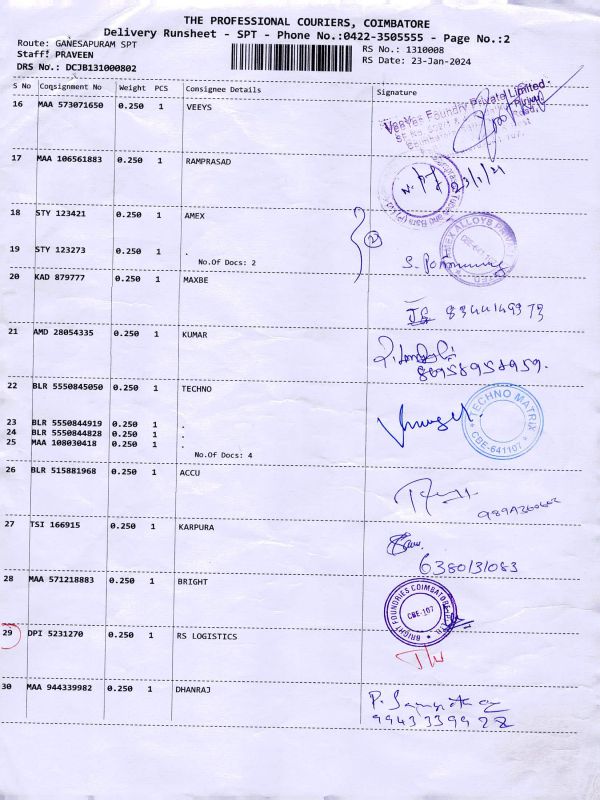 THE PROFESSIONAL COURIERS, COIMBATORE
Delivery Runsheet - SPT - Phone No.:0422-3505555 - Page No.:2
Route: GANESAPURAM SPT
Staff: PRAVEEN
DRS No.: DCJB131000802
RS No.: 1310008
RS Date: 23-Jan-2024
S No Coqsignment No Weight PCS Consignee Details Signature
16 MAA 573071650 0.250 1 VEEYS
VeeYes Foundry Private Limited.
17 MAA 106561883 0.250 1 RAMPRASAD
23/1/24
18 STY 123421 0.250 1 AMEX
19 STY 123273 0.250 1 .
No.Of Docs: 2
20 KAD 879777 0.250 1 MAXBE
8344149973
21 AMD 28054335 0.250 1 KUMAR
86958958959.
22 BLR 5550845050 0.250 1 TECHNO
TECHNO MATRIX
CBE-641107
23 BLR 5550844919 0.250 1 .
24 BLR 5550844828 0.250 1 .
25 MAA 108030418 0.250 1 .
No.Of Docs: 4
26 BLR 515881968 0.250 1 ACCU
27 TSI 166915 0.250 1 KARPURA
6380131083
28 MAA 571218883 0.250 1 BRIGHT
BRIGHT FOUNDRIES COIMBATORE
CBE-107
29 DPI 5231270 0.250 1 RS LOGISTICS
30 MAA 944339982 0.250 1 DHANRAJ
9943339928